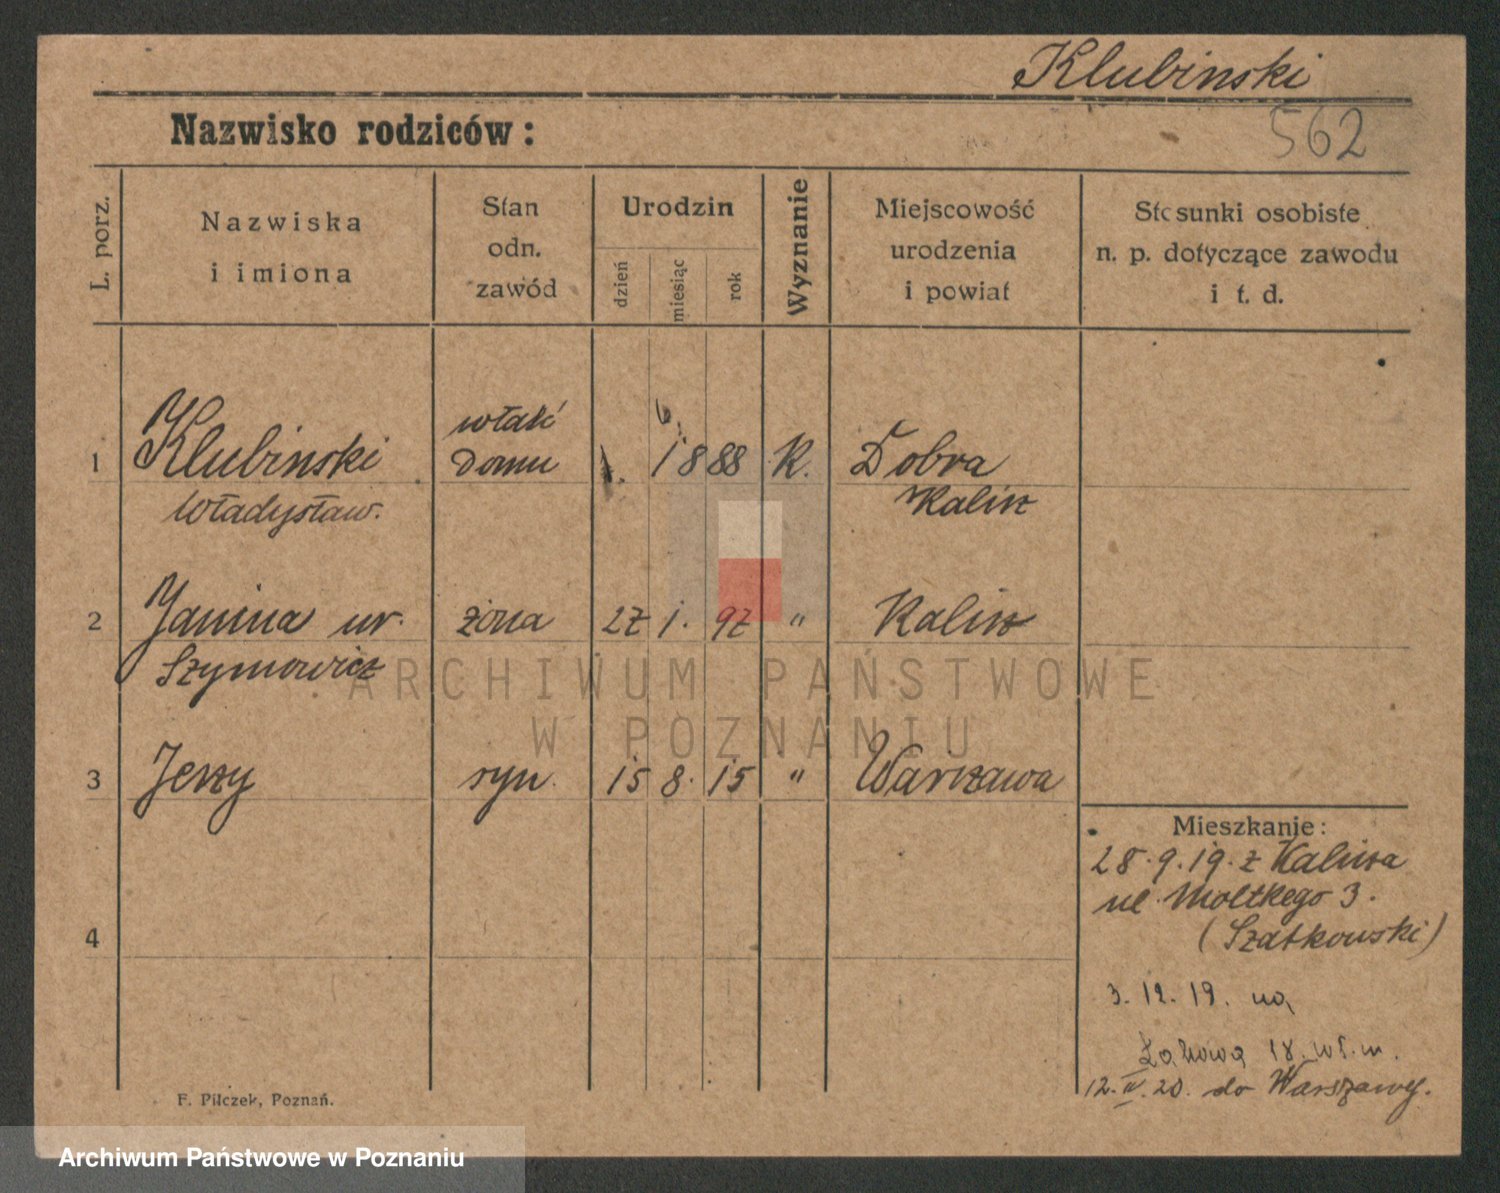 Klubinski
Nazwisko rodziców:
562
L. porz.
Nazwiska
i imiona
Stan
odn.
zawód
Urodzin
dzień
miesiąc
rok
Wyznanie
Miejscowość
urodzenia
i powiat
Stosunki osobiste
n. p. dotyczące zawodu
i t. d.
1
Klubinski
Władysław.
właść
Domu
1888
K.
Dobra
Kalisz
2
Janina ur.
Szymowicz
żona
27 1. 97
"
Kalisz
ARCHIWUM PAŃSTWOWE
W POZNANIU
3
Jerzy
syn.
15 8. 15
"
Warszawa
4
Mieszkanie:
28.9.19. z Kalisza
ul. Moltkego 3.
(Szatkowski)
3. 12. 19. na
Łąkową 18. wł. m.
12. IV. 20. do Warszawy.
F. Pilczek, Poznań.
Archiwum Państwowe w Poznaniu